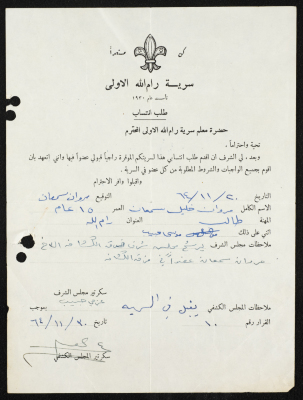 كن مستعداً
سرية رام الله الاولى
طلب انتساب
حضرة معلم سرية رام الله الاولى المحترم
تحية واحتراما،
وبعد، لي الشرف ان اقدم طلب انتسابي هذا لسريتكم الموقرة راجياً قبولي عضواً فيها وانني اتعهد بان
اقوم بجميع الواجبات والشروط المطلوبة من كل عضو في السرية.
واقبلوا وافر الاحترام
التاريخ ٢٠ / ١١ / ٦٤ التوقيع مروان سمعان
الاسم الكامل مروان خليل سمعان العمر ١٥ عام
المهنة طالب العنوان رام الله
اثنى على ذلك
ملاحظات مجلس الشرف
سكرتير مجلس الشرف
ملاحظات المجلس الكشفي يقبل في السرية بموجب
القرار رقم ١٠ تاريخ ٢٠ / ١١ / ٦٤
سكرتير المجلس الكشفي